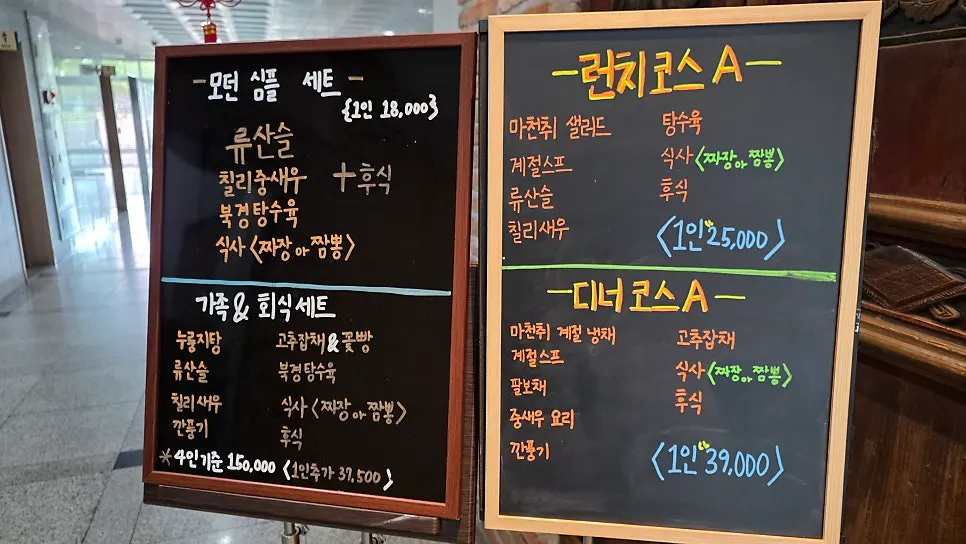 -모던 심플 세트-
{1인 18,000}
류산슬
칠리중새우 +후식
북경탕수육
식사〈짜장 or 짬뽕〉
가족 & 회식세트
누룽지탕 고추잡채&꽃빵
류산슬 북경탕수육
칠리새우 식사〈짜장 or 짬뽕〉
깐풍기 후식
*4인기준 150,000 〈1인추가 37,500〉
-런치코스 A-
마천취 샐러드 탕수육
계절스프 식사〈짜장 or 짬뽕〉
류산슬 후식
칠리새우 〈1인 25,000〉
-디너코스 A-
마천취 계절 냉채 고추잡채
계절스프 식사〈짜장 or 짬뽕〉
팔보채 후식
중새우 요리
깐풍기 〈1인 39,000〉